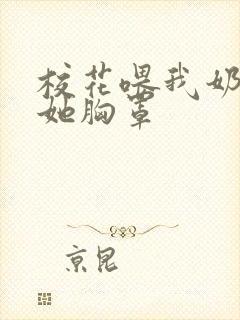 校花喂我奶
她胸罩
京昆